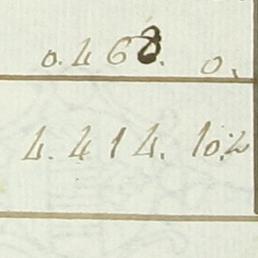 0.468. 0.
4.414. 10.2